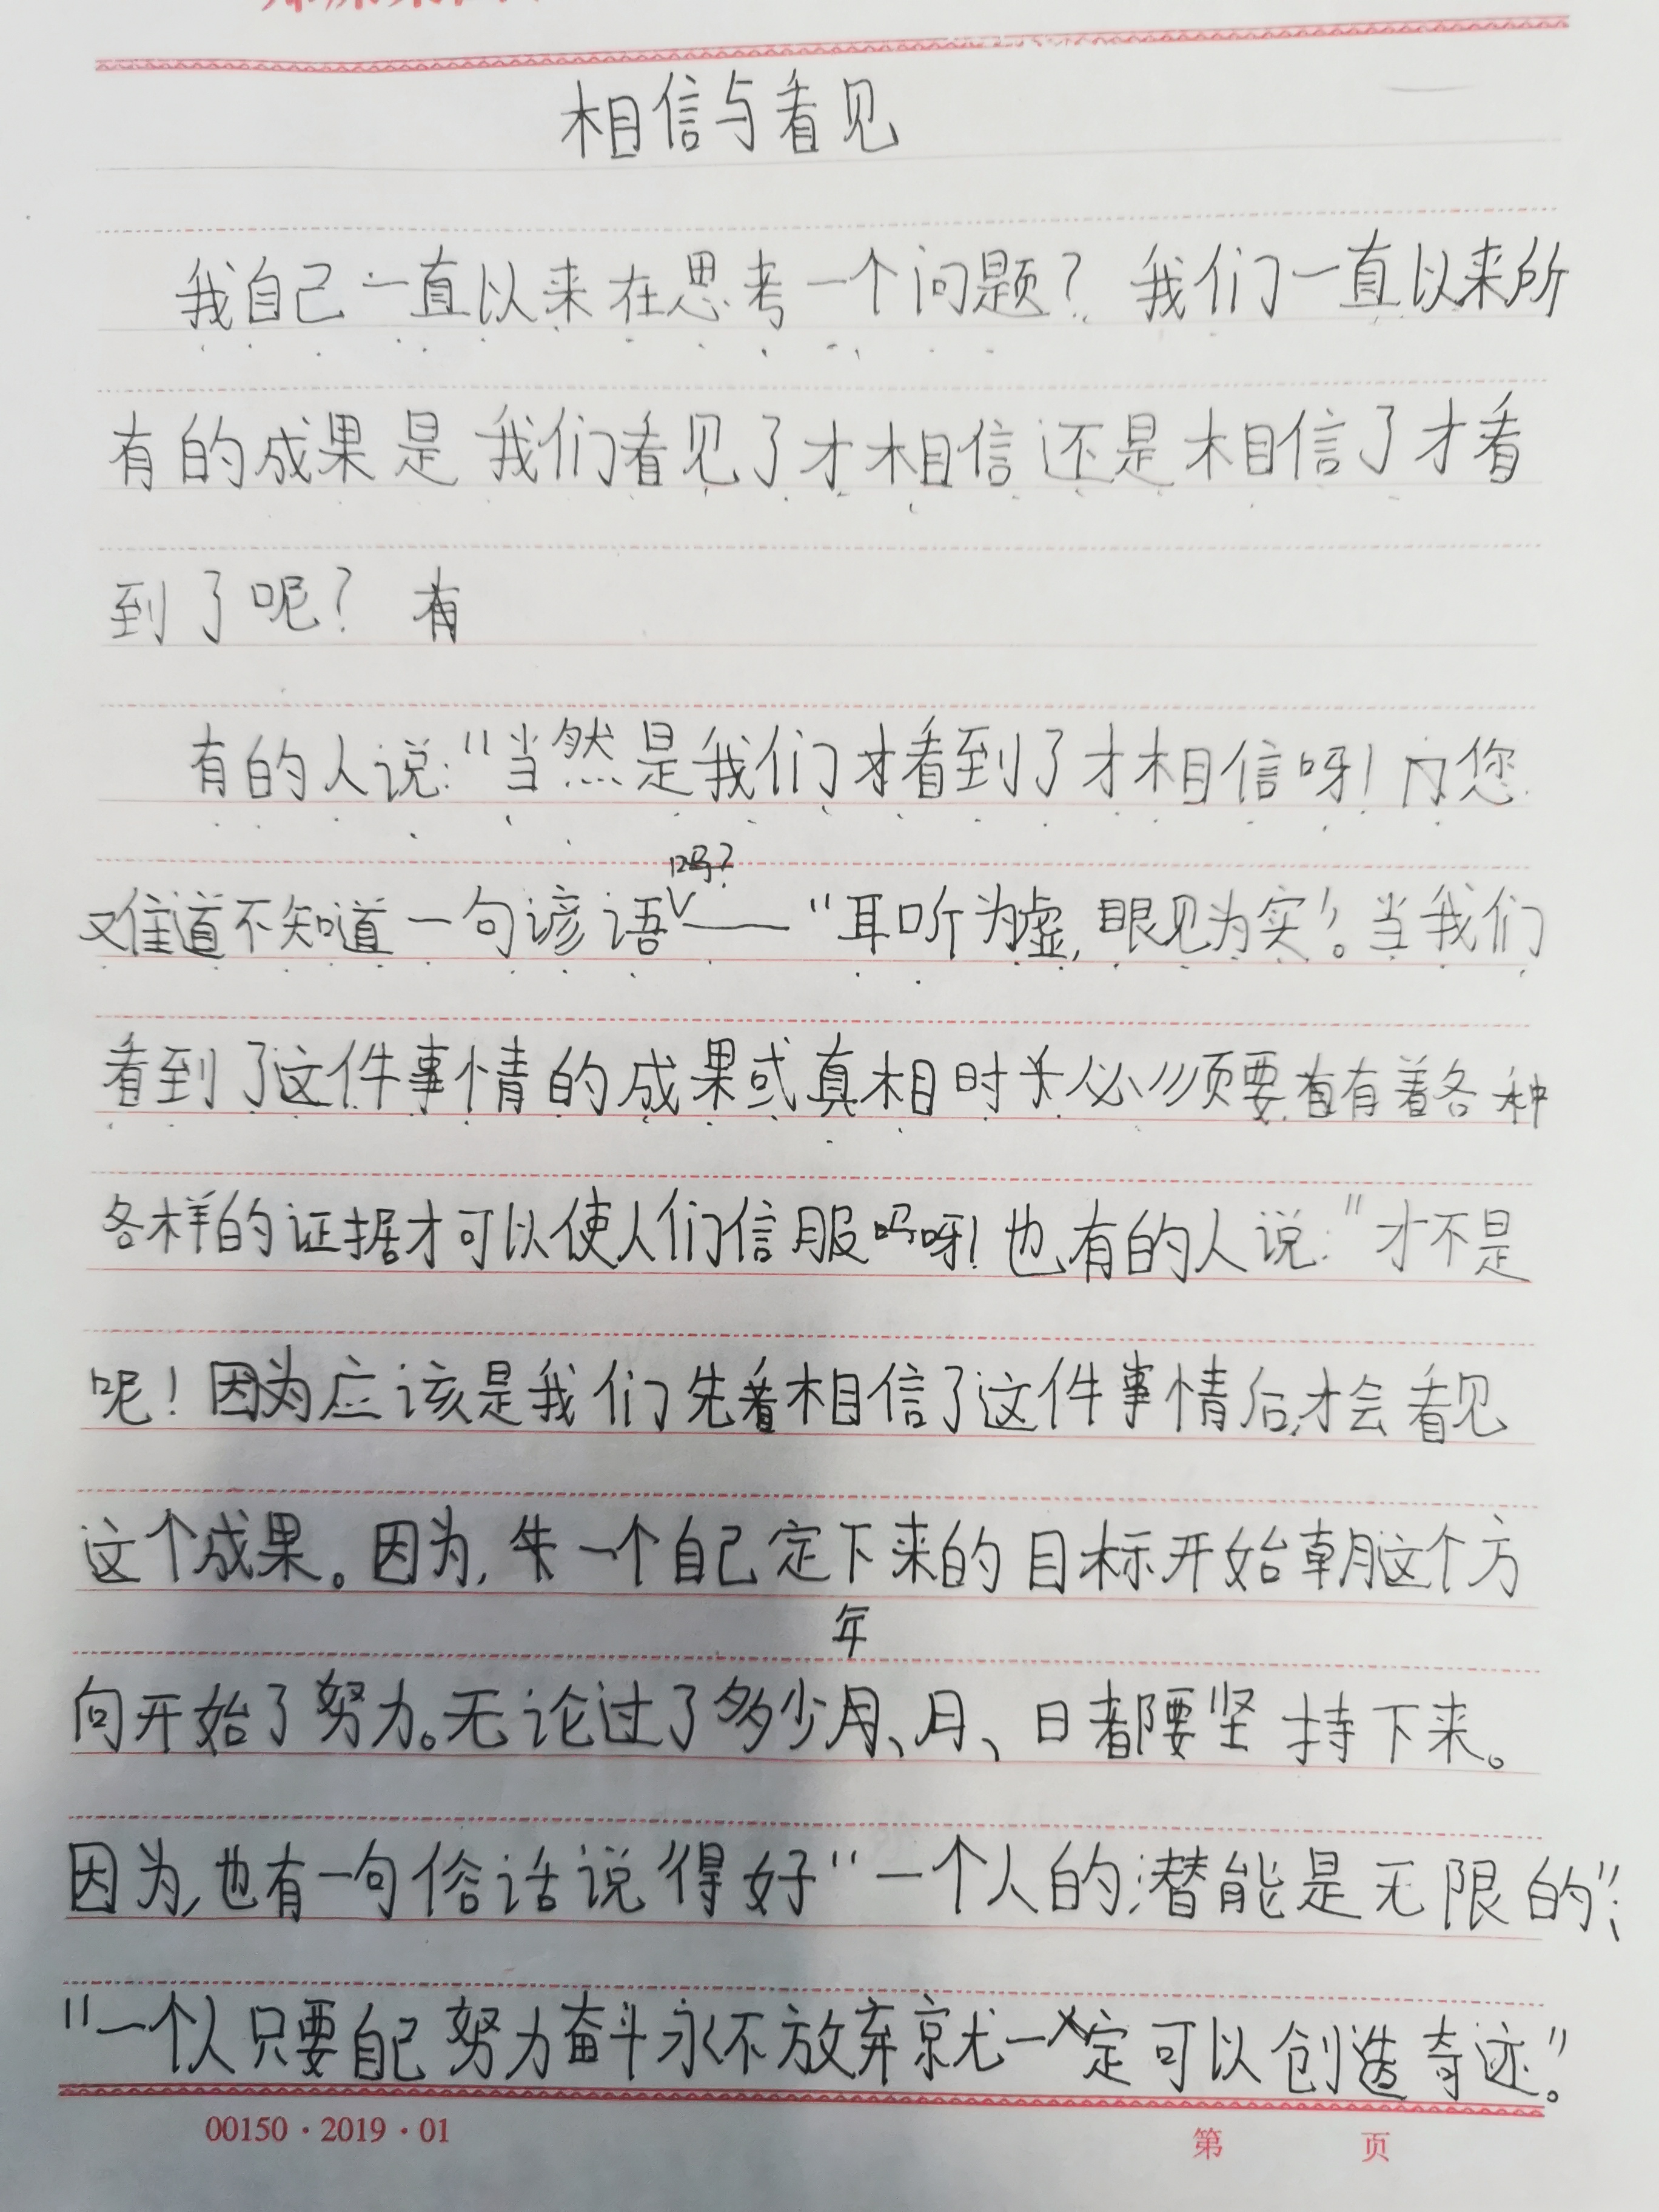 相信与看见
我自己一直以来在思考一个问题？我们一直以来所
有的成果是我们看见了才相信还是相信了才看
到了呢？有
有的人说：“当然是我们才看到了才相信呀！您
吗？
难道不知道一句谚语——“耳听为虚，眼见为实”。当我们
看到了这件事情的成果或真相时必须要有有着各种
各样的证据才可以使人们信服吗呀！也有的人说：“才不是
呢！因为应该是我们先看相信了这件事情后，才会看见
这个成果。因为，一个自己定下来的目标开始朝这个方
年
向开始了努力。无论过了多少月、月、日都要坚持下来。
因为，也有一句俗话说得好“一个人的潜能是无限的”；
“一个人只要自己努力奋斗永不放弃就一定可以创造奇迹。”
00150·2019·01
第 页